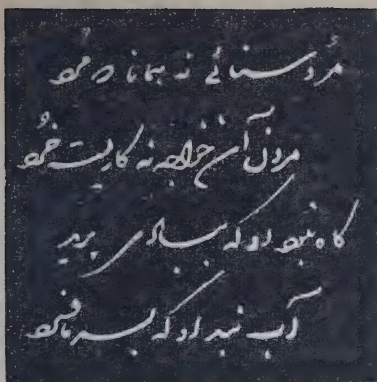 مُرد سنائی نه همانا که مُرد
مردن آن خواجه نه کاریست خُرد
کاه نبود او که ببادی پرید
آب نبد او که بسرما فسرد